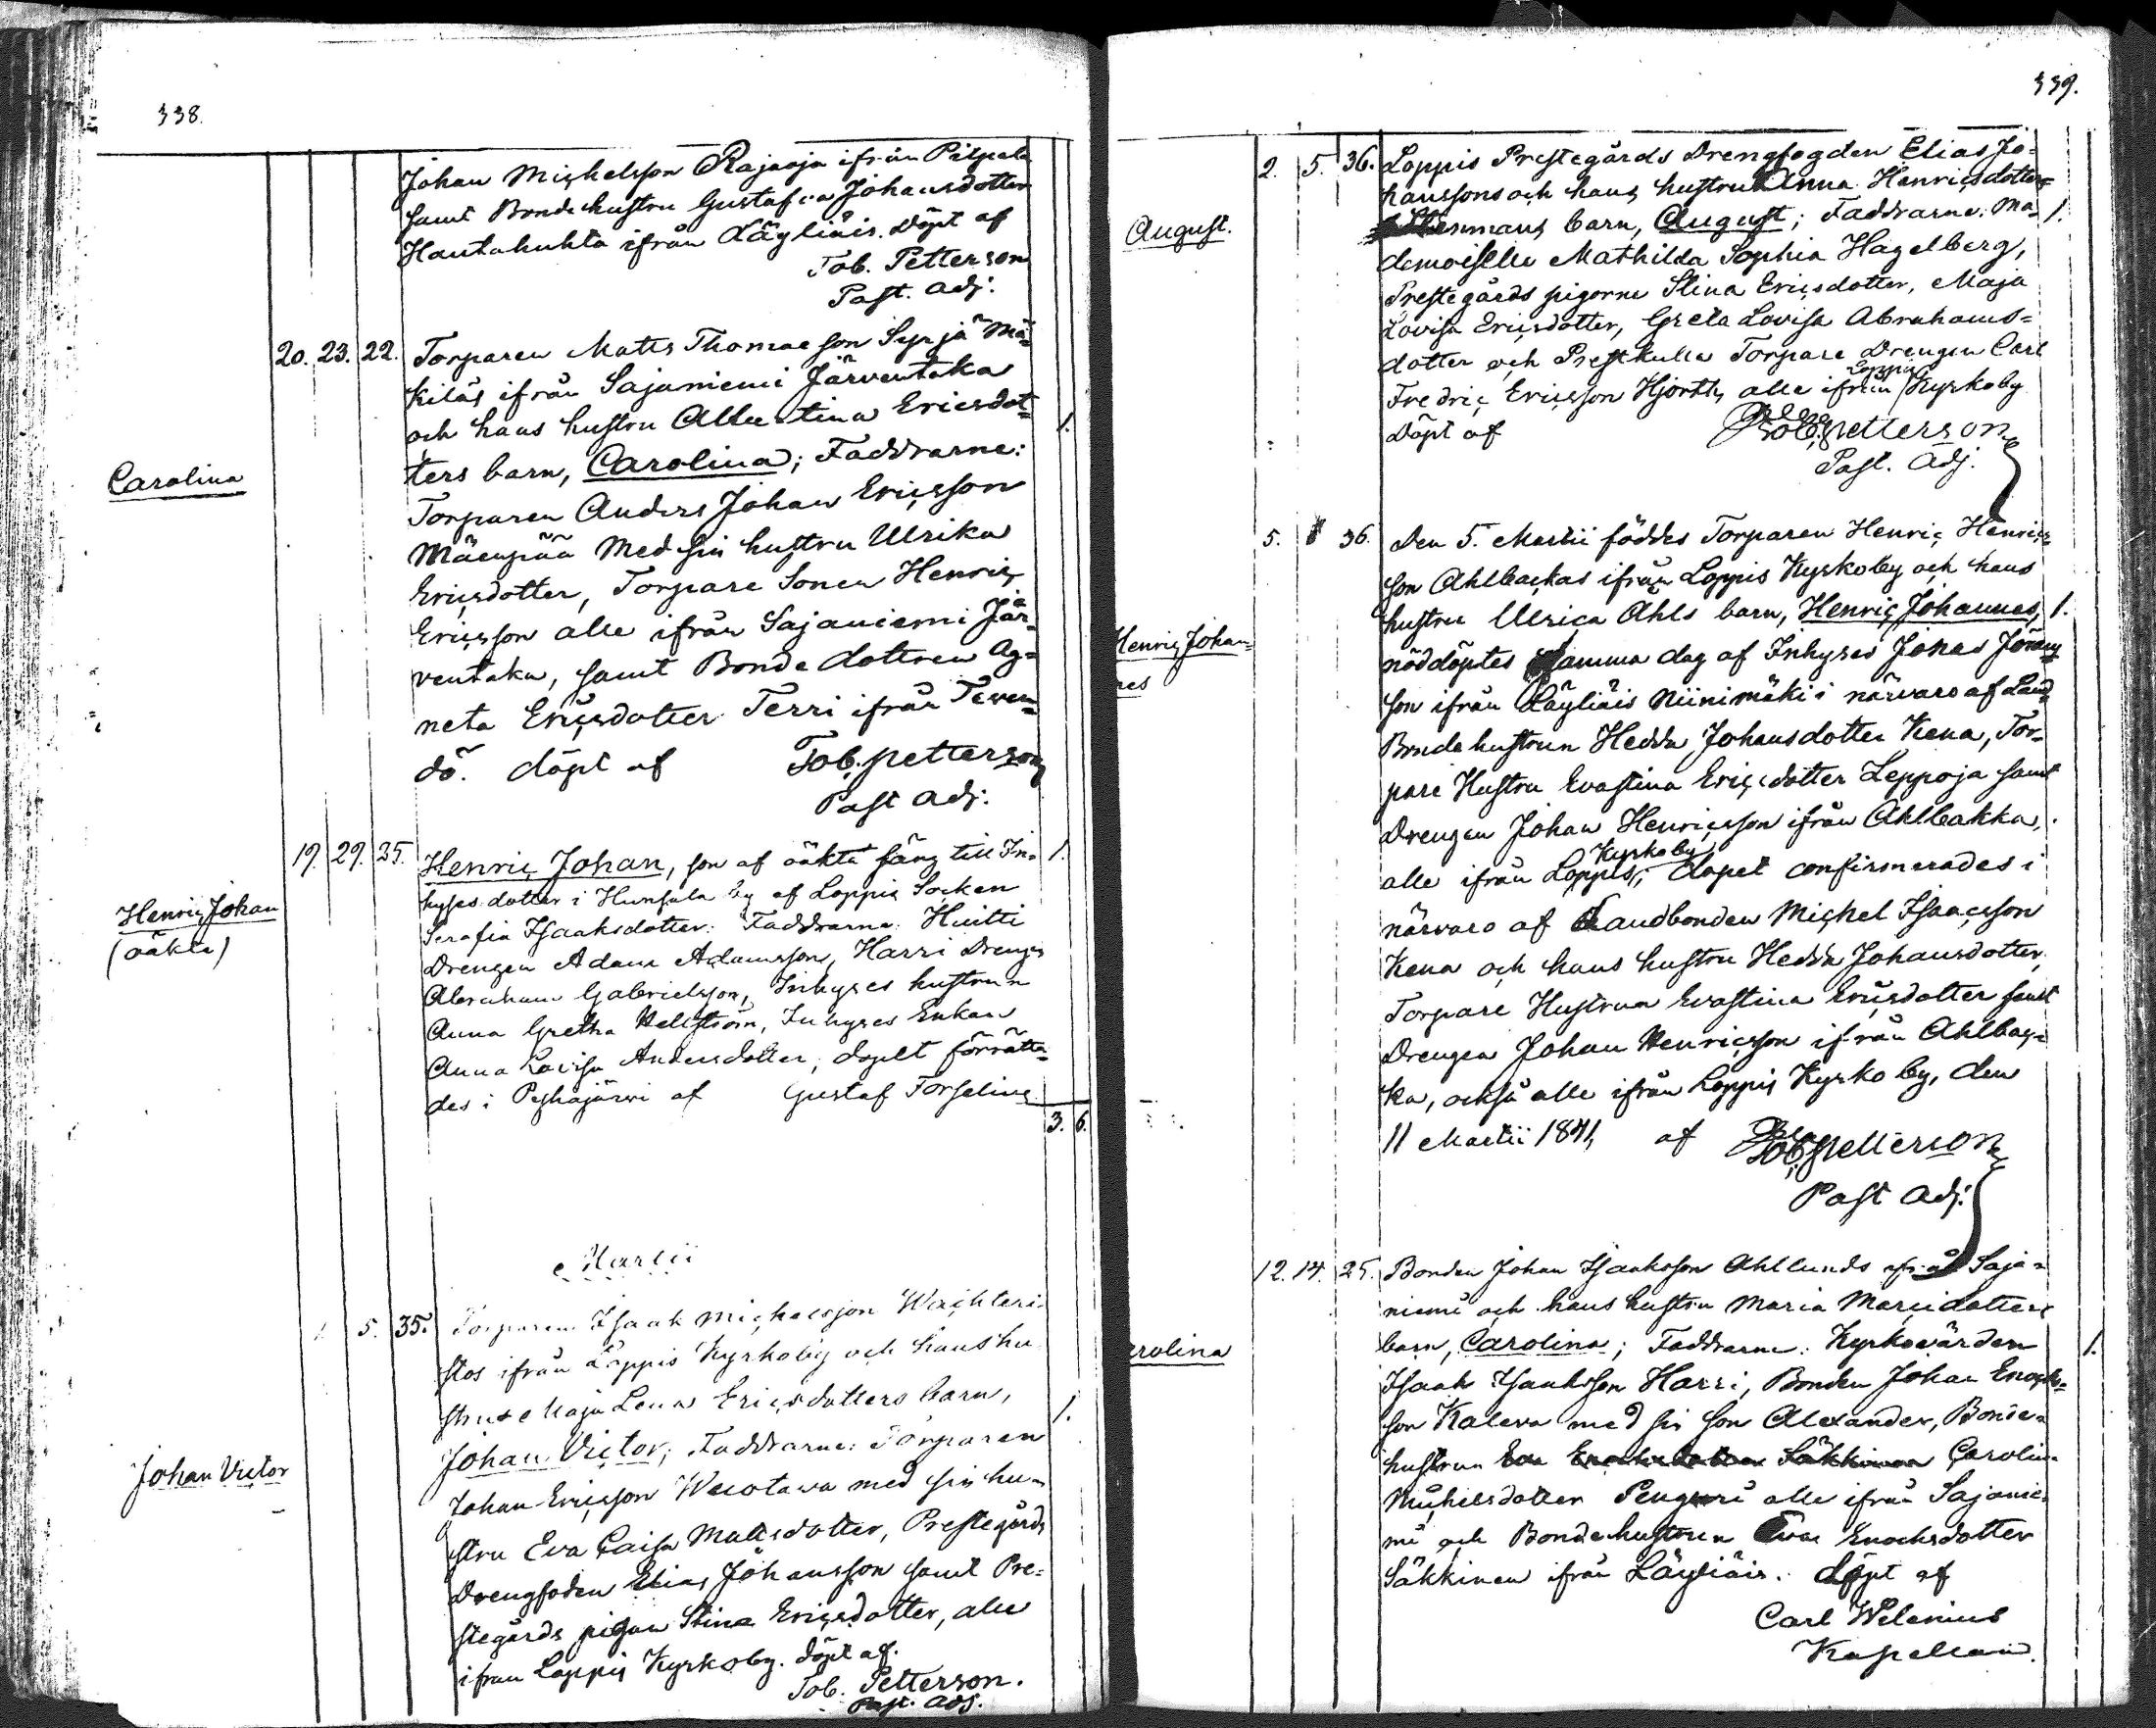 338.
Johan Michelsson Rajaoja ifrån Pilpala
samt Bondehustru Gustafva Johansdotter
Hautakuhta ifrån Läyliäis. Döpt af
Tob. Petterson
Past. adj.
20. 23. 22. Torparen Matts Thomasson Syrjä Mä=
kiläs ifrån Sajaniemi Järventaka
och hans hustru Albertina Ericsdot= 1.
Carolina
ters barn, Carolina; Faddrarne:
Torparen Anders Johan Ericsson
Mäenpää med sin hustru Ulrika
Ericsdotter, Torpare Sonen Henric
Ericsson alle ifrån Sajaniemi Jär=
ventaka, samt Bonde dottren Ag=
neta Ericsdotter Terri ifrån Teven=
dö. döpt af Tob. Petterson
Past adj.
19. 29. 25. Henric Johan, son af oäkta säng till In= 1.
hyses dotter i Hunsala by af Loppis Socken
Henric Johan
(oäkta)
Serafia Isaaksdotter: Faddrarne: Huitti
Drengen Adam Adamsson, Harri Drengen
Abraham Gabrielsson, Inhyses hustrun
Anna Gretha Hellström, Inhyses Enkan
Anna Lovisa Andersdotter, dopet förrätta=
des i Pyhäjärvi af Gustaf Forselius
3. 6.
Martii
5. 35. Torparen Isaak Michelsson Wächteri=
stos ifrån Loppis Kyrkoby och hans hu=
stru Maja Lena Ericsdotters barn, 1.
Johan Victor
Johan Victor; Faddrarne: Torparen
Johan Ericsson Wesotava med sin hu=
stru Eva Caisa Mattsdotter, Prestegårds
Drengfoden Elias Johansson samt Pre=
stegårds pigan Stina Ericsdotter, alle
ifrån Loppis Kyrkoby. döpt af.
Tob. Petterson.
Past. adj.
339.
2. 5. 36. Loppis Prestegårds Drengfogden Elias Jo=
hanssons och hans hustru Anna Henricsdotter
August.
Stenmans barn, August; Faddrarne: Ma= 1.
demoiselle Mathilda Sophia Hagelberg,
Prestegårds pigorne Stina Ericsdotter, Maja
Lovisa Ericsdotter, Greta Lovisa Abrahams=
dotter och Prestkulla Torpare Drengen Carl
Loppis
Fredric Ericsson Hjorth, alle ifrån Kyrkoby
Döpt af Tob. Petterson
Past. Adj.
5. 36. Den 5. Martii föddes Torparen Henric Henrics=
son Ahlbackas ifrån Loppis Kyrkoby och hans
Henric Johan=
nes
hustru Ulrica Ahls barn, Henric Johannes, 1.
nöddöptes samma dag af Inhyses Jonas Jöran=
son ifrån Läyliäis Niinimäki i närvaro af Land=
Bondehustrun Hedda Johansdotter Kena, Tor=
pare Hustru Evastina Ericsdotter Leppoja samt
Drengen Johan Henricsson ifrån Ahlbakka,
Kyrkoby
alle ifrån Loppis; dopet confirmerades i
närvaro af Landbonden Michel Isaacsson
Kena och hans hustru Hedda Johansdotter,
Torpare Hustrun Evastina Ericsdotter samt
Drengen Johan Henricsson ifrån Ahlbac=
ka, också alle ifrån Loppis Kyrkoby, den
11 Martii 1841, af Tob. Petterson
Past Adj.
12. 14. 25. Bonden Johan Isaaksson Ahllunds ifrån Saja=
niemi och hans hustru Maria Marcidotters
Carolina
barn, Carolina; Faddrarne: Kyrkovärden 1.
Isaak Isaaksson Harri, Bonden Johan Enochs=
son Kaleva med sin son Alexander, Bonde=
hustrun Eva Enochsdotter Säkkinen Carolina
Michelsdotter Penguri alle ifrån Sajanie=
mi och Bondehustrun Eva Enochsdotter
Säkkinen ifrån Läyliäis. döpt af
Carl Welenius
Kapellan.